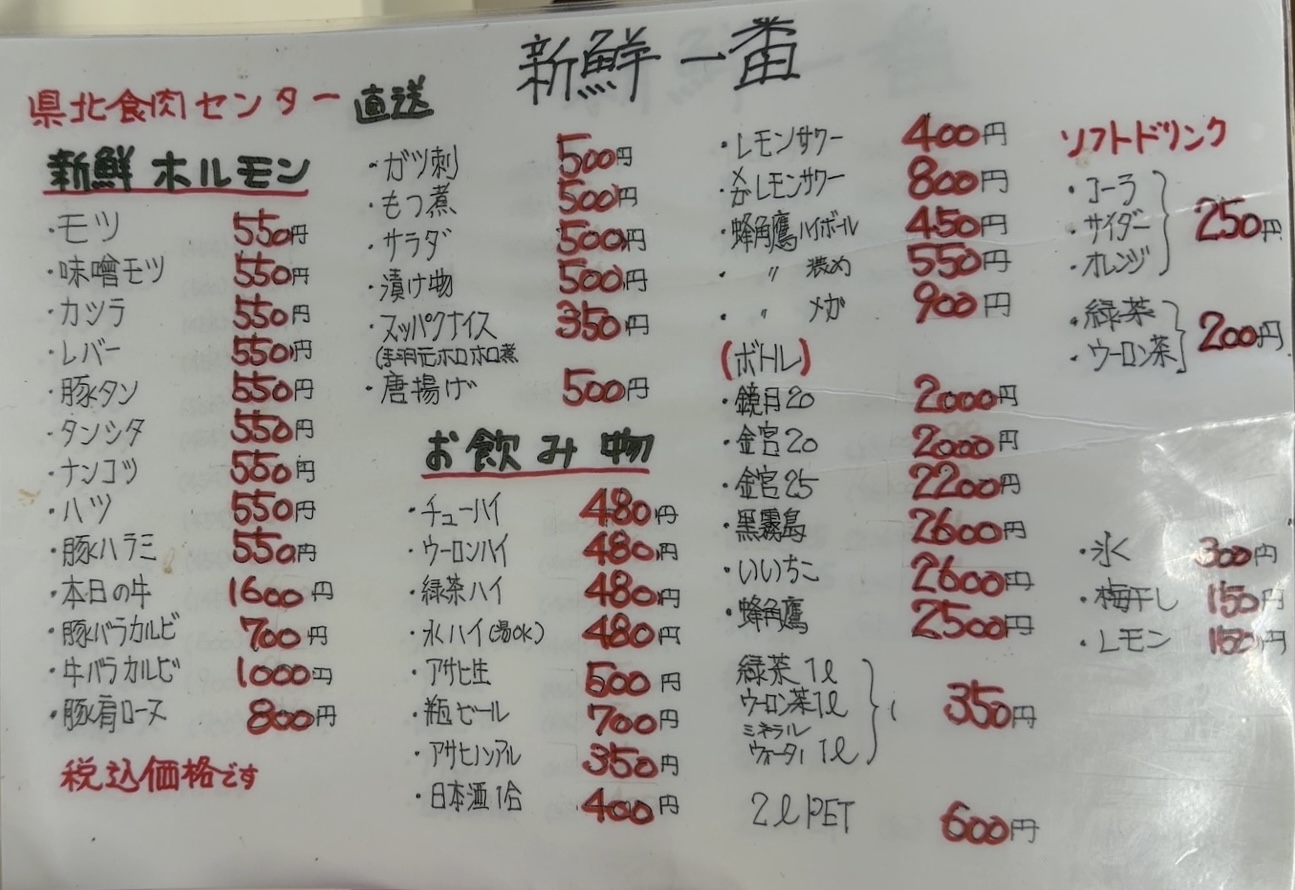 新鮮一番
県北食肉センター 直送
新鮮ホルモン
・モツ 550円
・味噌モツ 550円
・カツラ 550円
・レバー 550円
・豚タン 550円
・タンシタ 550円
・ナンコツ 550円
・ハツ 550円
・豚ハラミ 550円
・本日の牛 1600円
・豚バラカルビ 700円
・牛バラカルビ 1000円
・豚肩ロース 800円
税込価格です
・ガツ刺 500円
・もつ煮 500円
・サラダ 500円
・漬け物 500円
・スッパクナイス 350円
(手羽元ホロホロ煮
・唐揚げ 500円
お飲み物
・チューハイ 480円
・ウーロンハイ 480円
・緑茶ハイ 480円
・氷ハイ(湯OK) 480円
・アサヒ生 500円
・瓶ビール 700円
・アサヒノンアル 350円
・日本酒1合 400円
・レモンサワー 400円
・メガレモンサワー 800円
・蜂角鷹ハイボール 450円
・〃 濃め 550円
・〃 メガ 900円
(ボトル)
・鏡月20 2000円
・金宮20 2000円
・金宮25 2200円
・黒霧島 2600円
・いいちこ 2600円
・蜂角鷹 2500円
緑茶1l
ウーロン茶1l
ミネラル
ウォーター1l
350円
2lPET 600円
ソフトドリンク
・コーラ
・サイダー
・オレンジ
250円
・緑茶
・ウーロン茶
200円
・氷 300円
・梅干し 150円
・レモン 150円